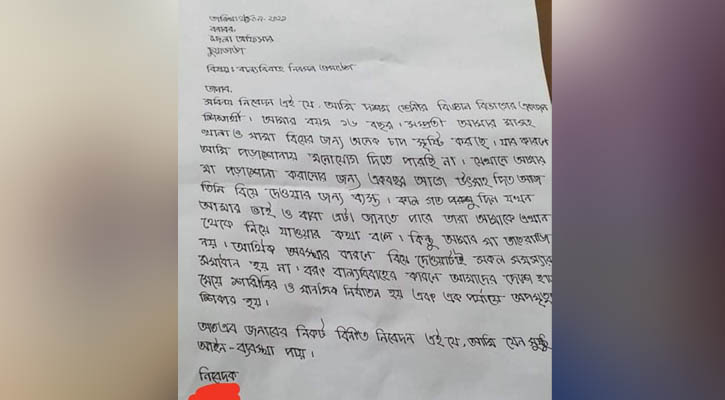 তারিখঃ ২০২০
বরাবর,
থানা অফিসার
চুয়াডাঙ্গা
বিষয়ঃ বাল্যবিবাহ নিবন্ধন প্রসঙ্গে
জনাব,
সবিনয় নিবেদন এই যে, আমি দশম শ্রেনীর বিজ্ঞান বিভাগের একজন
শিক্ষার্থী। আমার বয়স ১৬ বছর। সম্প্রতী আমার মাসহ
খালা ও মামা বিয়ের জন্য অনেক চাপ সৃষ্টি করছে। যার কারনে
আমি পড়াশোনায় মনোযোগ দিতে পারছি না। যেখানে আমার
মা পড়াশোনা করানোর জন্য একবছর আগে উৎসাহ দিত আজ
তিনি বিয়ে দেওয়ার জন্য ব্যস্ত। কাল গত পরশু দিন যখন
আমার ভাই ও বাবা এটা জানতে পারে তারা আমাকে এখান
থেকে নিয়ে যাওয়ার কথা বলে। কিন্তু আমার মা তাতে রাজি
নয়। আর্থিক অবস্থার কারনে বিয়ে দেওয়াটাই সকল সমস্যার
সমাধান হয় না। বরং বাল্যবিবাহের কারনে আমাদের দেশে
মেয়ে শারীরিক ও মানসিক নির্যাতন হয় এবং এক পর্যায়ে অপমৃত্যু
শিকার হয়।
অতএব জনাবের নিকট বিনিত নিবেদন এই যে, আমি যেন সুষ্ঠু
আইন-ব্যবস্থা পায়।
নিবেদক